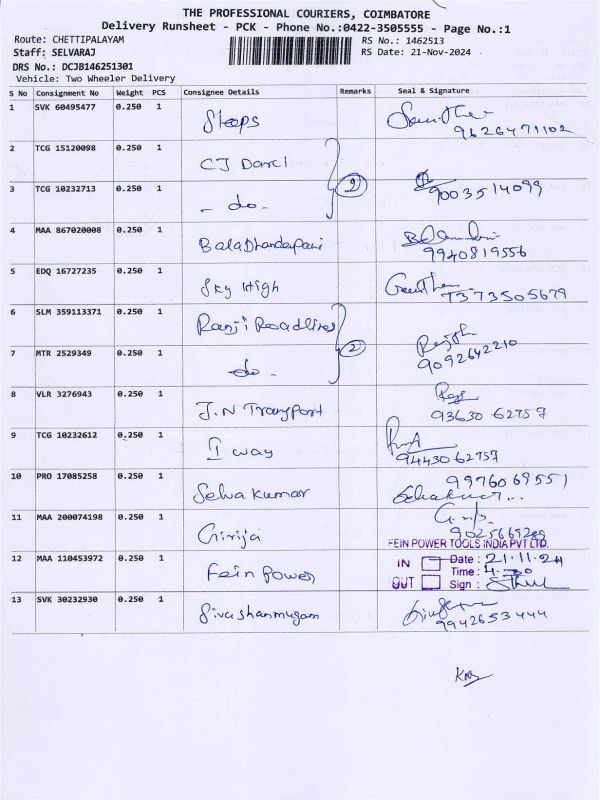 THE PROFESSIONAL COURIERS, COIMBATORE
Delivery Runsheet - PCK - Phone No.:0422-3505555 - Page No.:1
Route: CHETTIPALAYAM RS No.: 1462513
Staff: SELVARAJ RS Date: 21-Nov-2024
DRS No.: DCJB146251301
Vehicle: Two Wheeler Delivery
S No Consignment No Weight PCS Consignee Details Remarks Seal & Signature
1 SVK 60495477 0.250 1 Steps
9626471102
2 TCG 15120098 0.250 1 CJ Darcl
3 TCG 10232713 0.250 1 - do - 2 9003514099
4 MAA 867020008 0.250 1 BalaDhandapani
9940819556
5 EDQ 16727235 0.250 1 Sky High
7373505679
6 SLM 359113371 0.250 1 Ranji Roadlines
7 MTR 2529349 0.250 1 - do - 2 9092642210
8 VLR 3276943 0.250 1 J.N Transport
93630 62757
9 TCG 10232612 0.250 1 I way
94430 62757
10 PRO 17085258 0.250 1 Selva Kumar 9976069551
11 MAA 200074198 0.250 1 Girija
FEIN POWER TOOLS INDIA PVT LTD.
12 MAA 110453972 0.250 1 Fein Power
IN Date : 21.11.24
Time :
OUT Sign :
13 SVK 30232930 0.250 1 Sivashanmugam
9942653444